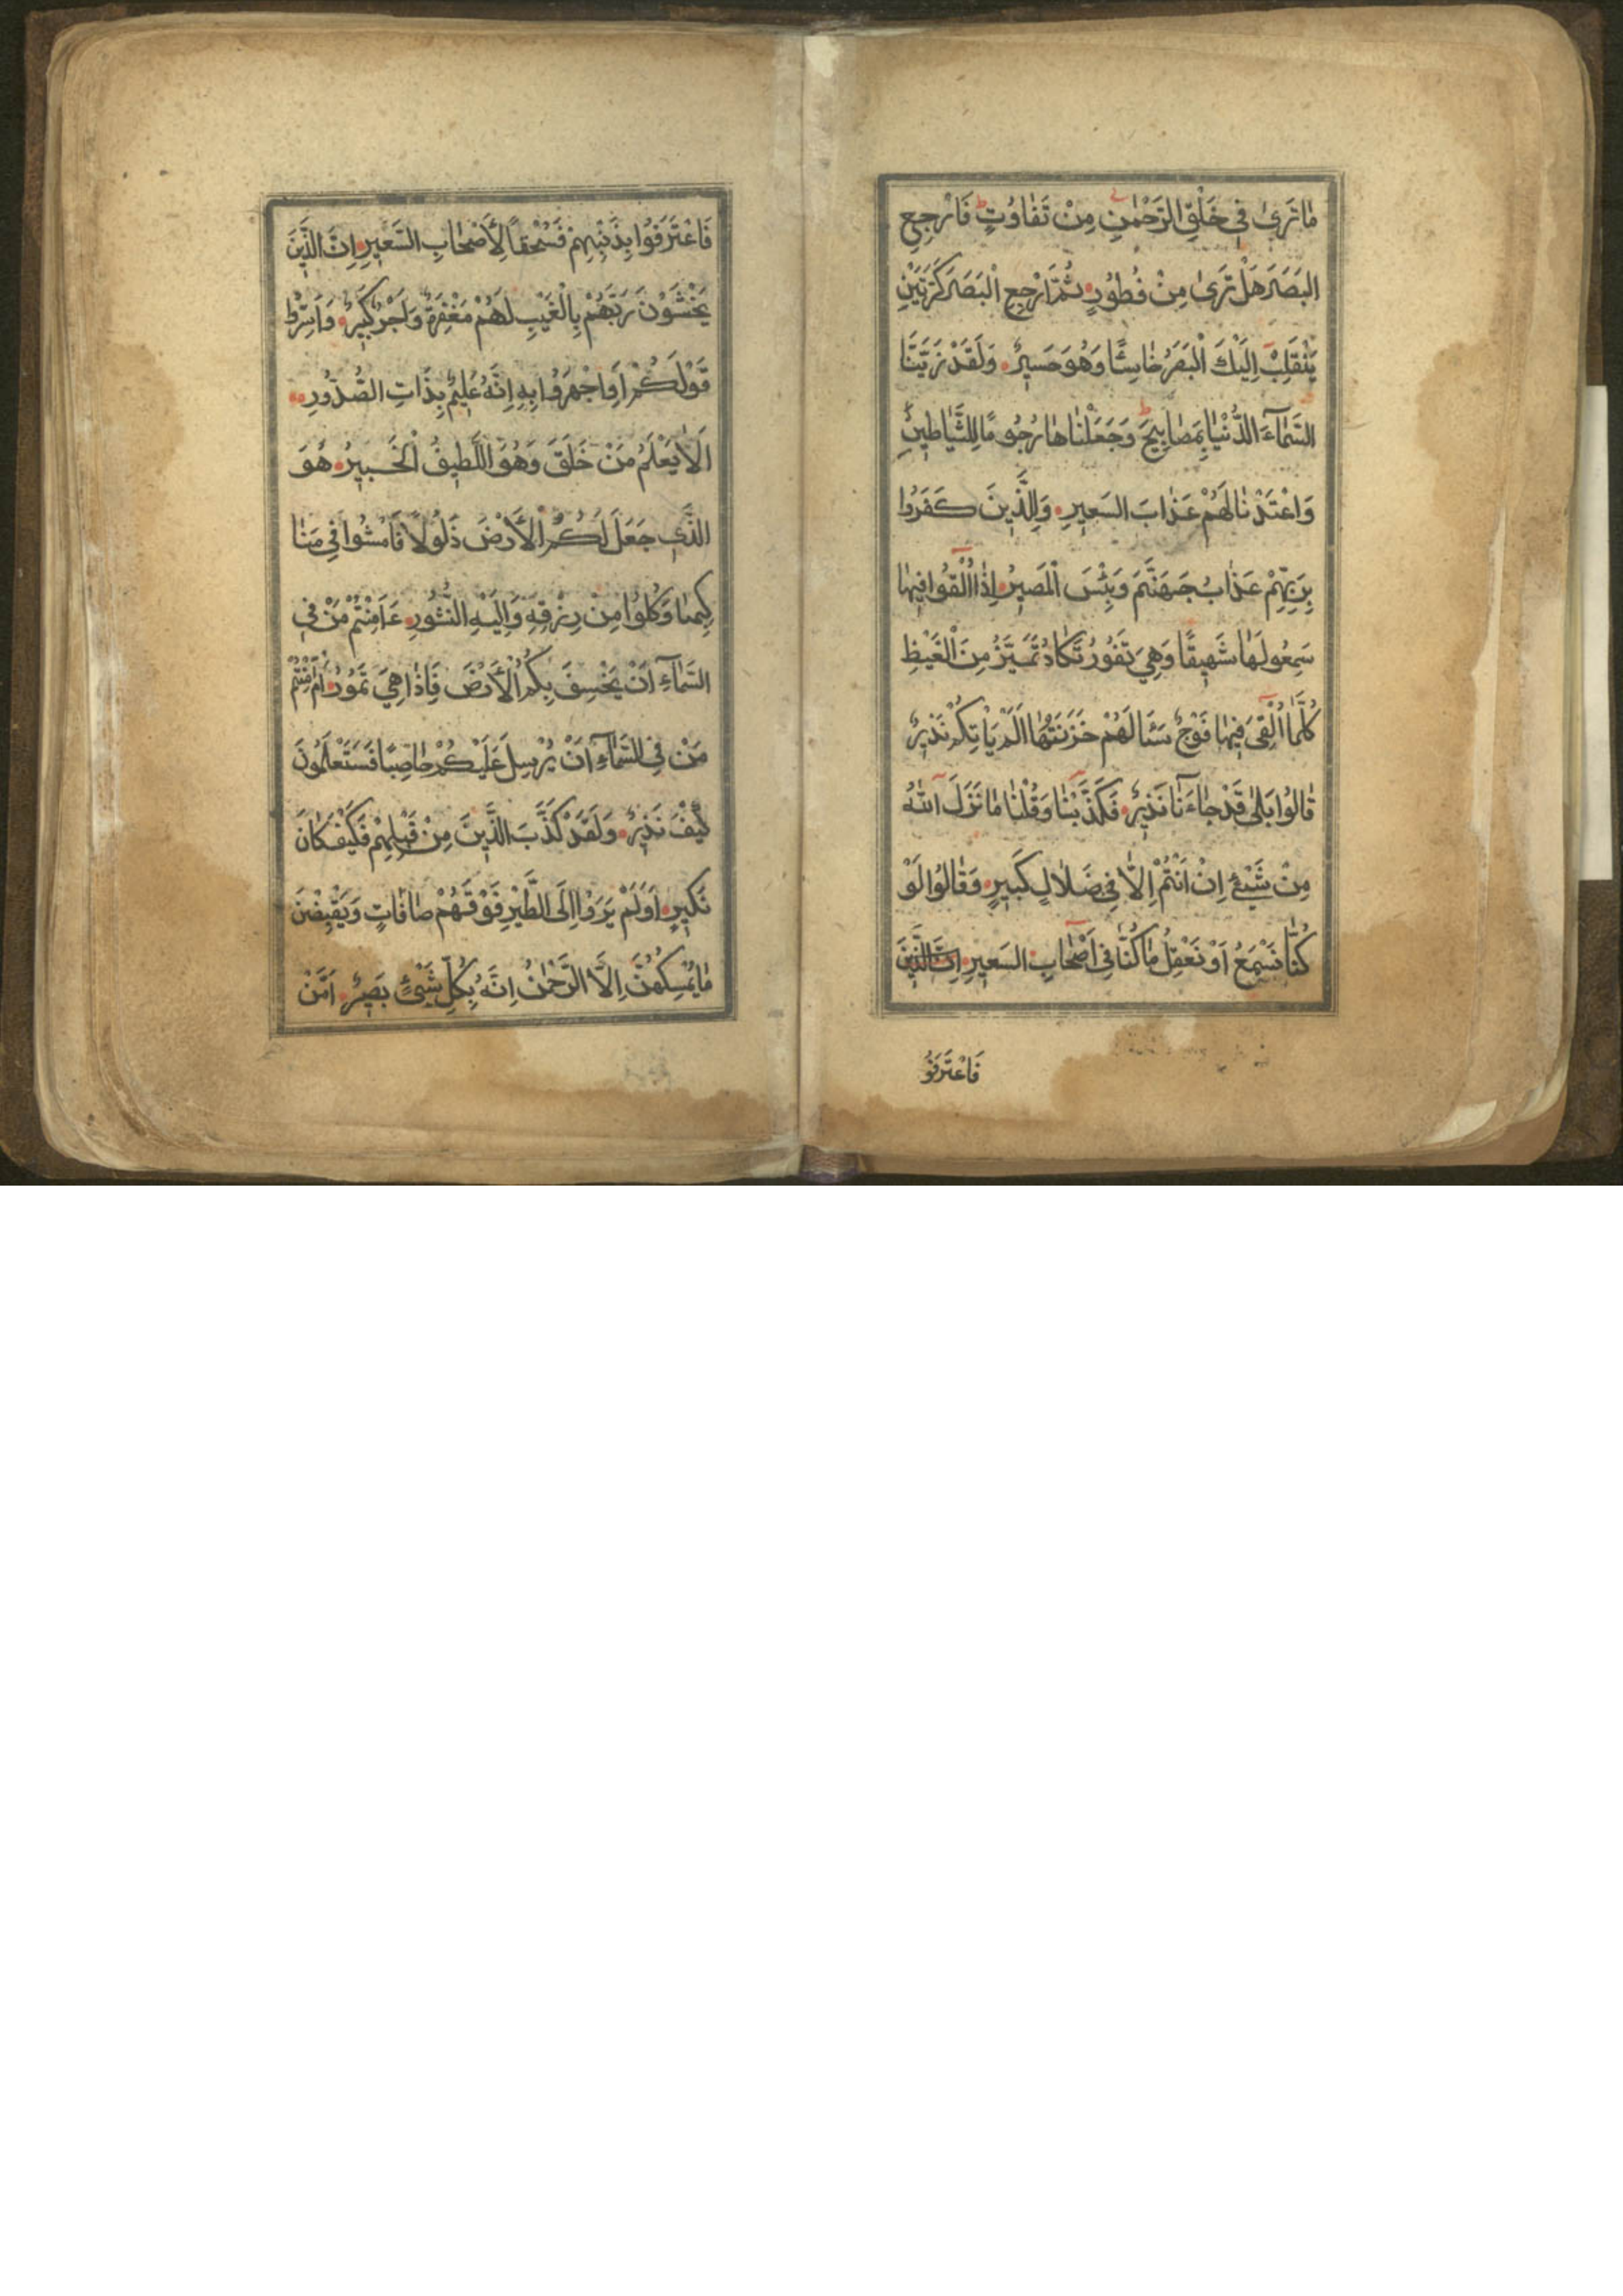 مٰا تَرىٰ فِي خَلْقِ الرَّحْمٰنِ مِنْ تَفٰاوُتٍ فَارْجِعِ
البَصَرَ هَلْ تَرىٰ مِنْ فُطُوُرٍ ثُمَّ ارْجِعِ الْبَصَرَ كَرَّتَيْنِ
يَنْقَلِبْ اِلَيْكَ الْبَصَرُ خٰاسِئًا وَهُوَ حَسيٖرٌ وَلَقَدْ زَيَّنَّا
السَّمٰاۤءَ الدُّنْيٰا بِمَصٰابيٖحَ وَجَعَلْنٰاهٰا رُجُومًا لِلشَّيٰاطيٖنِ
وَاعْتَدْنٰا لَهُمْ عَذٰابَ السَعيٖرِ وَلِلَّذيٖنَ كَفَرُوا
بِرَبِّهِمْ عَذٰابُ جَهَنَّمَ وَبِئْسَ الْمَصيٖرُ اِذٰا اُلْقُوا فيٖهٰا
سَمِعُو لَهٰا شَهيٖقًا وَهِيَ تَفُورُ تَكٰادُ تَمَيَّزُ مِنَ الْغَيْظِ
كُلَّمٰا اُلْقِيَ فيٖهٰا فَوْجٌ سَئَالَهُمْ خَزَنَتُهٰا اَلَمْ يَاْتِكُمْ نَذيٖرٌ
قٰالُوا بَلىٰ قَدْ جٰاۤءَنٰا نَذيٖرٌ فَكَذَّبْنٰا وَقُلْنٰا مٰا نَزَّلَ اللّٰهُ
مِنْ شَيْئٍ اِنْ اَنْتُمْ اِلّٰا فيٖ ضَلٰالٍ كَبيٖرٍ وَقٰالُوا لَوْ
كُنّٰا نَسْمَعُ اَوْ نَعْقِلُ مٰا كُنّٰا فيٖ اَصْحٰابِ السَعيٖرِ اِنَّ الَّذيٖنَ
فَاعْتَرَفُو
فَاعْتَرَفُوا بِذَنْبِهِمْ فَسُحْقًا لِاَصْحٰابِ السَّعيٖرِ اِنَّ الَّذيٖنَ
يَخْشَوْنَ رَبَّهُمْ بِالْغَيْبِ لَهُمْ مَغْفِرَةٌ وَاَجْرٌ كَبيٖرٌ وَاَسِرُّوا
قَوْلَكُمْ اَوِ اجْهَرُوا بِهِ اِنَّهُ عَليٖمٌ بِذٰاتِ الصُّدُورِ
اَلٰا يَعْلَمُ مَنْ خَلَقَ وَهُوَ اللَّطيٖفُ الْخَبيٖرُ هُوَ
الَّذيٖ جَعَلَ لَكُمُ الْاَرْضَ ذَلُولًا فَامْشُوا فيٖ مَنٰا
كِبِهٰا وَكُلُوا مِنْ رِزْقِهِ وَاِلَيْهِ النُّشُورِ ءَاَمِنْتُمْ مَنْ فِي
السَّمٰاۤءِ اَنْ يَخْسِفَ بِكُمُ الْاَرْضَ فَاِذٰا هِيَ تَمُورُ اَمْ اَمِنْتُمْ
مَنْ فِي السَّمٰاۤءِ اَنْ يُرْسِلَ عَلَيْكُمْ حٰاصِبًا فَسَتَعْلَمُونَ
كَيْفَ نَذيٖرٌ وَلَقَدْ كَذَّبَ الَّذيٖنَ مِنْ قَبْلِهِمْ فَكَيْفَ كٰانَ
نَكيٖرِ اَوَلَمْ يَرَوْا اِلَى الطَّيْرِ فَوْقَهُمْ صٰافّٰاتٍ وَيَقْبِضْنَ
مٰا يُمْسِكُهُنَّ اِلَّا الرَّحْمٰنُ اِنَّهُ بِكُلِّ شَيْئٍ بَصيٖرٌ اَمَّنْ